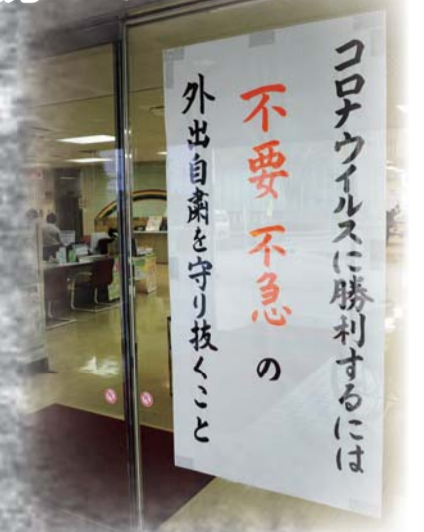 コロナウイルスに勝利するには
不要 不急 の
外出自粛を守り抜くこと